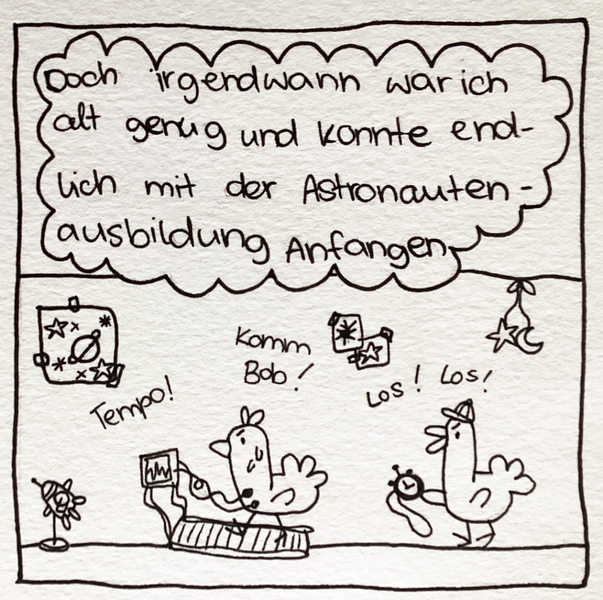 Doch irgendwann war ich
alt genug und konnte end-
lich mit der Astronauten-
ausbildung Anfangen
Komm
Bob!
Tempo!
Los! Los!